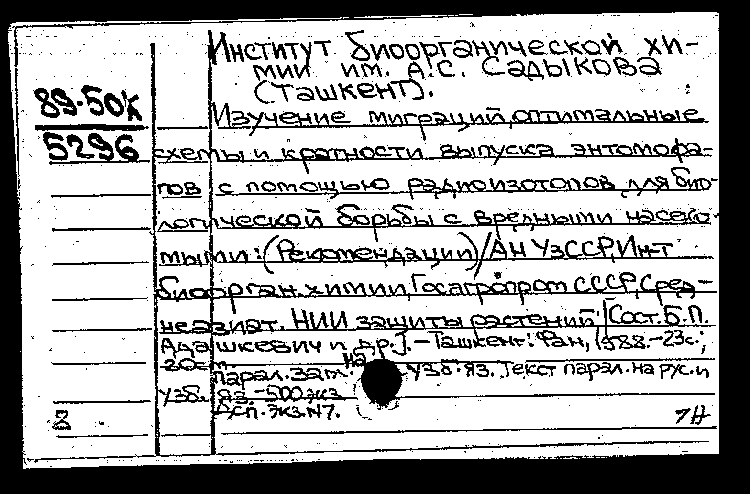 Институт биоорганической хи-
мии им. А.С. Садыкова
(Ташкент).
89-50к
5296
Изучение миграций, оптимальные
схемы и кратности выпуска энтомофа-
гов с помощью радиоизотопов для био-
логической борьбы с вредными насеко-
мыми: (Рекомендации)/АН УзССР, Ин-т
биоорган. химии, Госагропром СССР, Сред-
неазиат. НИИ защиты растений; [Сост. Б.П.
Адашкевич и др.]. - Ташкент: Фан, 1988.-23с.;
20см
парал. заг. на узб. яз. Текст парал. на рус. и
узб. яз. - 500 экз.
Дсп. экз. N7.